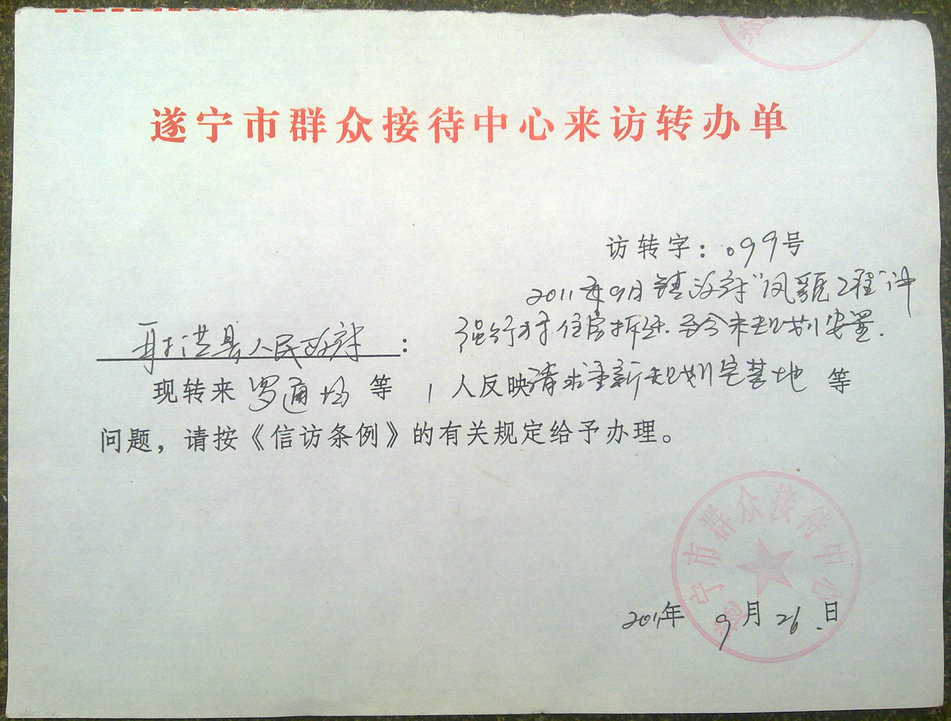 遂宁市群众接待中心来访转办单
访转字：099号
2011年9月镇政府"风貌工程"许
射洪县人民政府： 强行将住房拆迁.至今未规划安置.
现转来 罗通场 等 1 人反映请求重新规划宅基地 等
问题，请按《信访条例》的有关规定给予办理。
遂宁市群众接待中心
2011年 9月 26.日